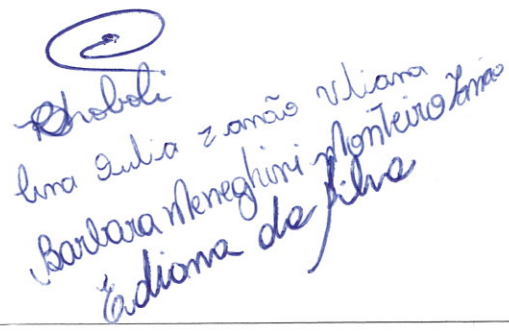 Ana Julia Zanão Viliana
Barbara Meneghini Monteiro Zanão
Ediana da Silva